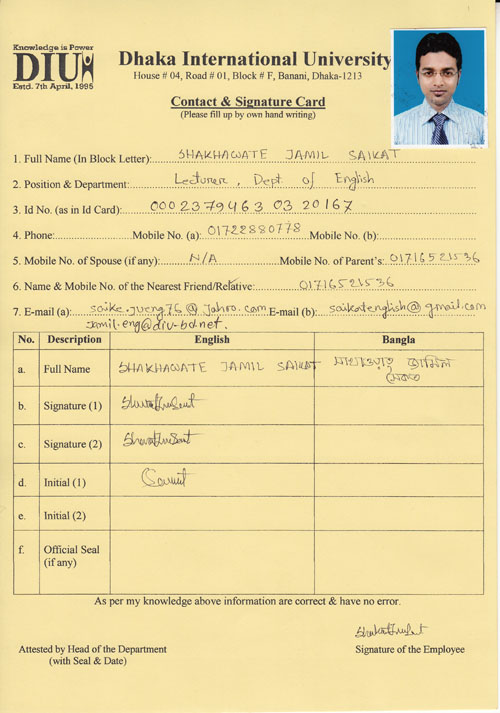 Knowledge is Power
DIU
Estd. 7th April, 1995
Dhaka International University
House # 04, Road # 01, Block # F, Banani, Dhaka-1213
Contact & Signature Card
(Please fill up by own hand writing)
1. Full Name (In Block Letter): SHAKHAWATE JAMIL SAIKAT
2. Position & Department: Lecturer, Dept. of English
3. Id No. (as in Id Card): 000237946303 20167
4. Phone: Mobile No. (a): 01722880778 Mobile No. (b):
5. Mobile No. of Spouse (if any): N/A Mobile No. of Parent's: 01716521536
6. Name & Mobile No. of the Nearest Friend/Relative: 01716521536
7. E-mail (a): E-mail (b): saikatenglish@gmail.com
jamil.eng@diu-bd.net.
No. Description English Bangla
a. Full Name SHAKHAWATE JAMIL SAIKAT সাখাওয়াত জামিল
সৈকত
b. Signature (1)
c. Signature (2)
d. Initial (1)
e. Initial (2)
f. Official Seal
(if any)
As per my knowledge above information are correct & have no error.
Attested by Head of the Department Signature of the Employee
(with Seal & Date)